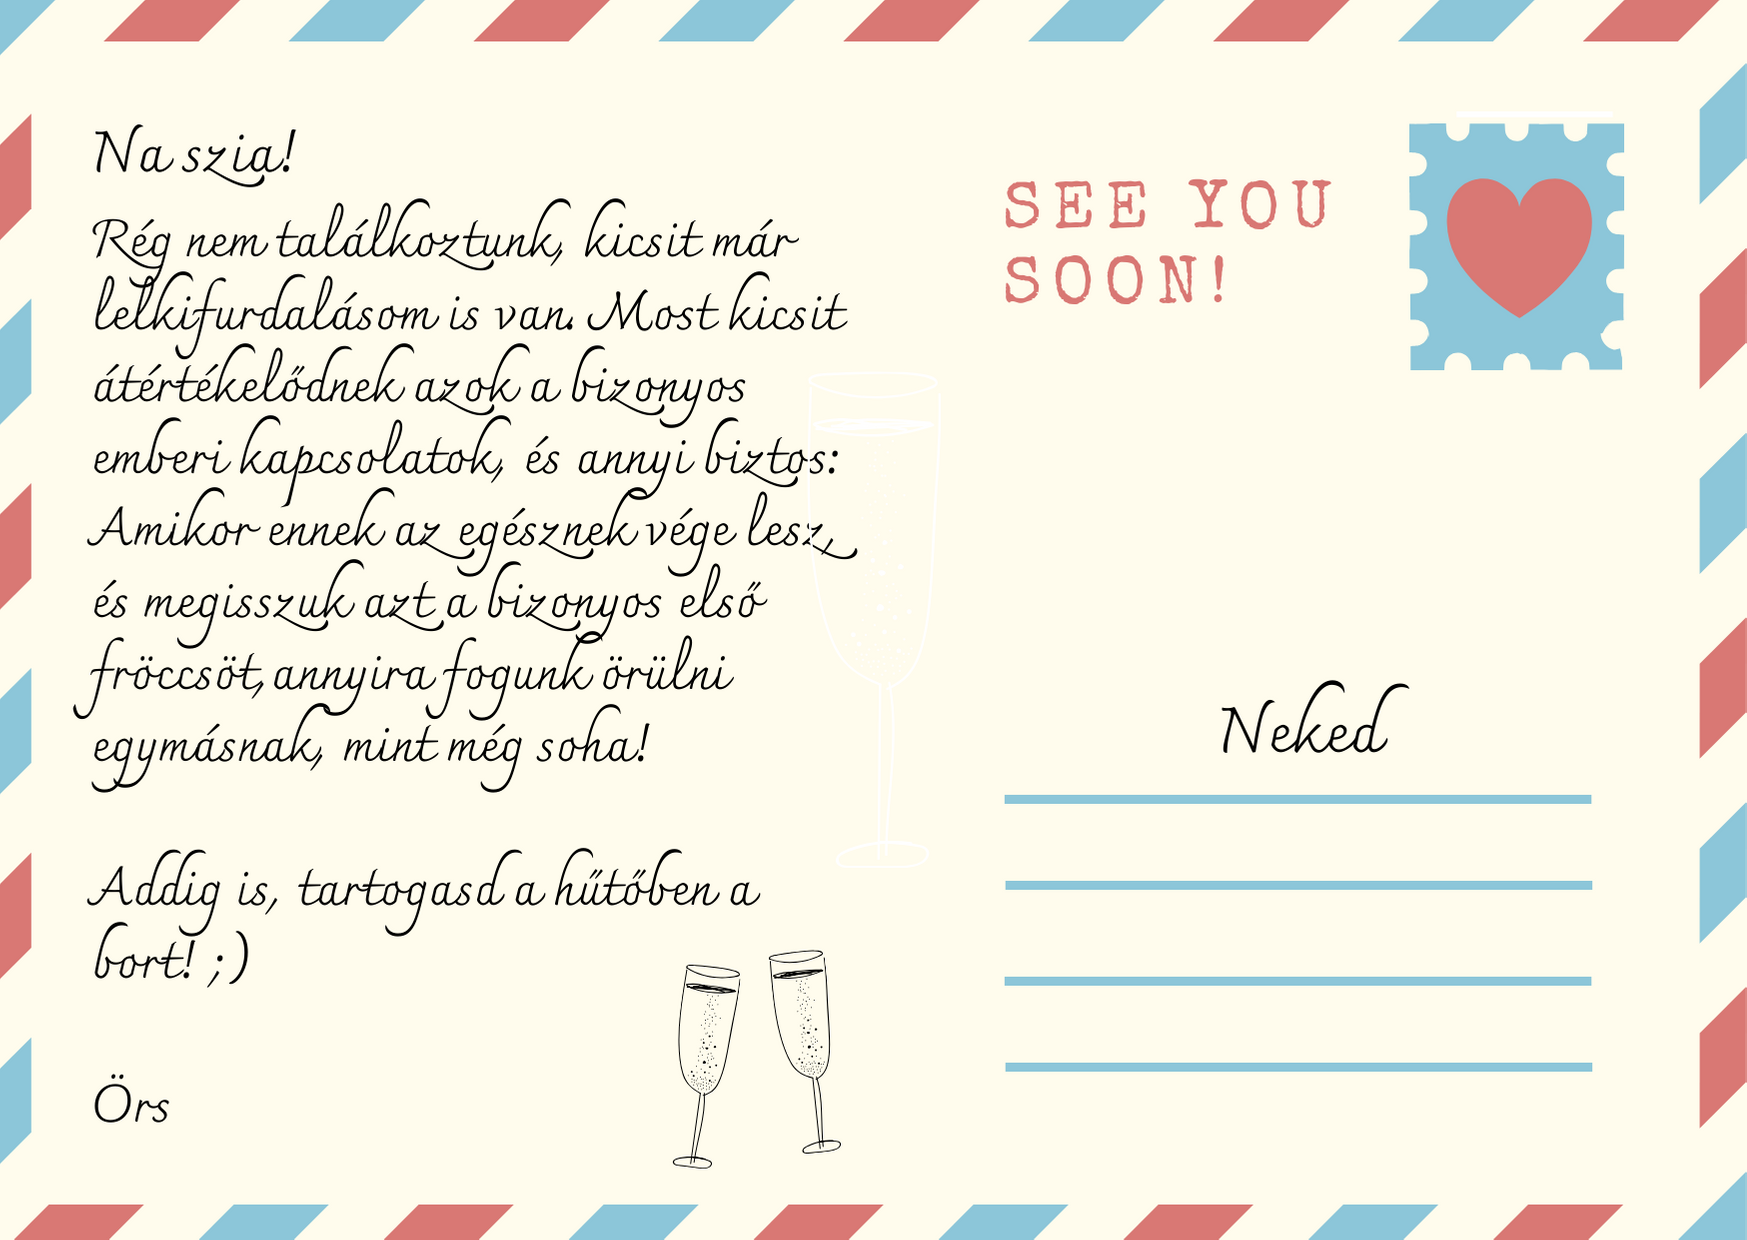 Na szia!
Rég nem találkoztunk, kicsit már
lelkifurdalásom is van. Most kicsit
átértékelődnek azok a bizonyos
emberi kapcsolatok, és annyi biztos:
Amikor ennek az egésznek vége lesz,
és megisszuk azt a bizonyos első
fröccsöt, annyira fogunk örülni
egymásnak, mint még soha!
Addig is, tartogasd a hűtőben a
bort! ;)
Örs
SEE YOU
SOON!
Neked